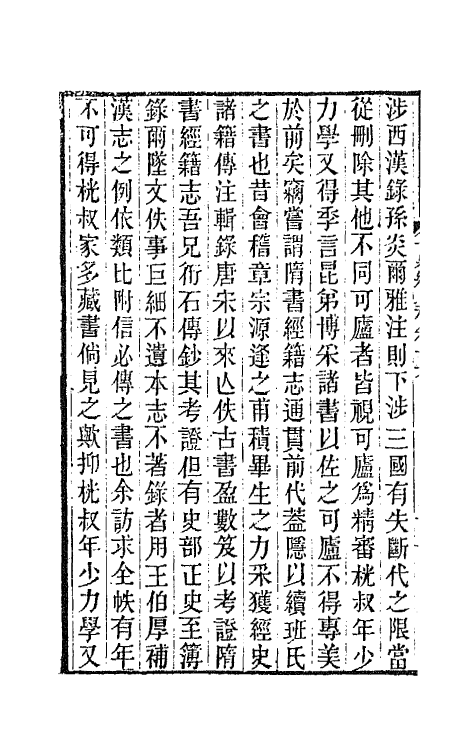 涉西漢錄孫炎爾雅注則下涉三國有失斷代之限當
從刪除其他不同可廬者皆視可廬爲精審桄叔年少
力學又得季言昆弟博采諸書以佐之可廬不得專美
於前矣竊嘗謂隋書經籍志通貫前代蓋隱以續班氏
之書也昔會稽章宗源逢之甫積畢生之力采獲經史
諸籍傳注輯錄唐宋以來亾佚古書盈數笈以考證隋
書經籍志吾兄衎石傳鈔其考證但有史部正史至簿
錄爾墜文佚事巨細不遺本志不著錄者用王伯厚補
漢志之例依類比附信必傳之書也余訪求全帙有年
不可得桄叔家多藏書倘見之歟抑桄叔年少力學又